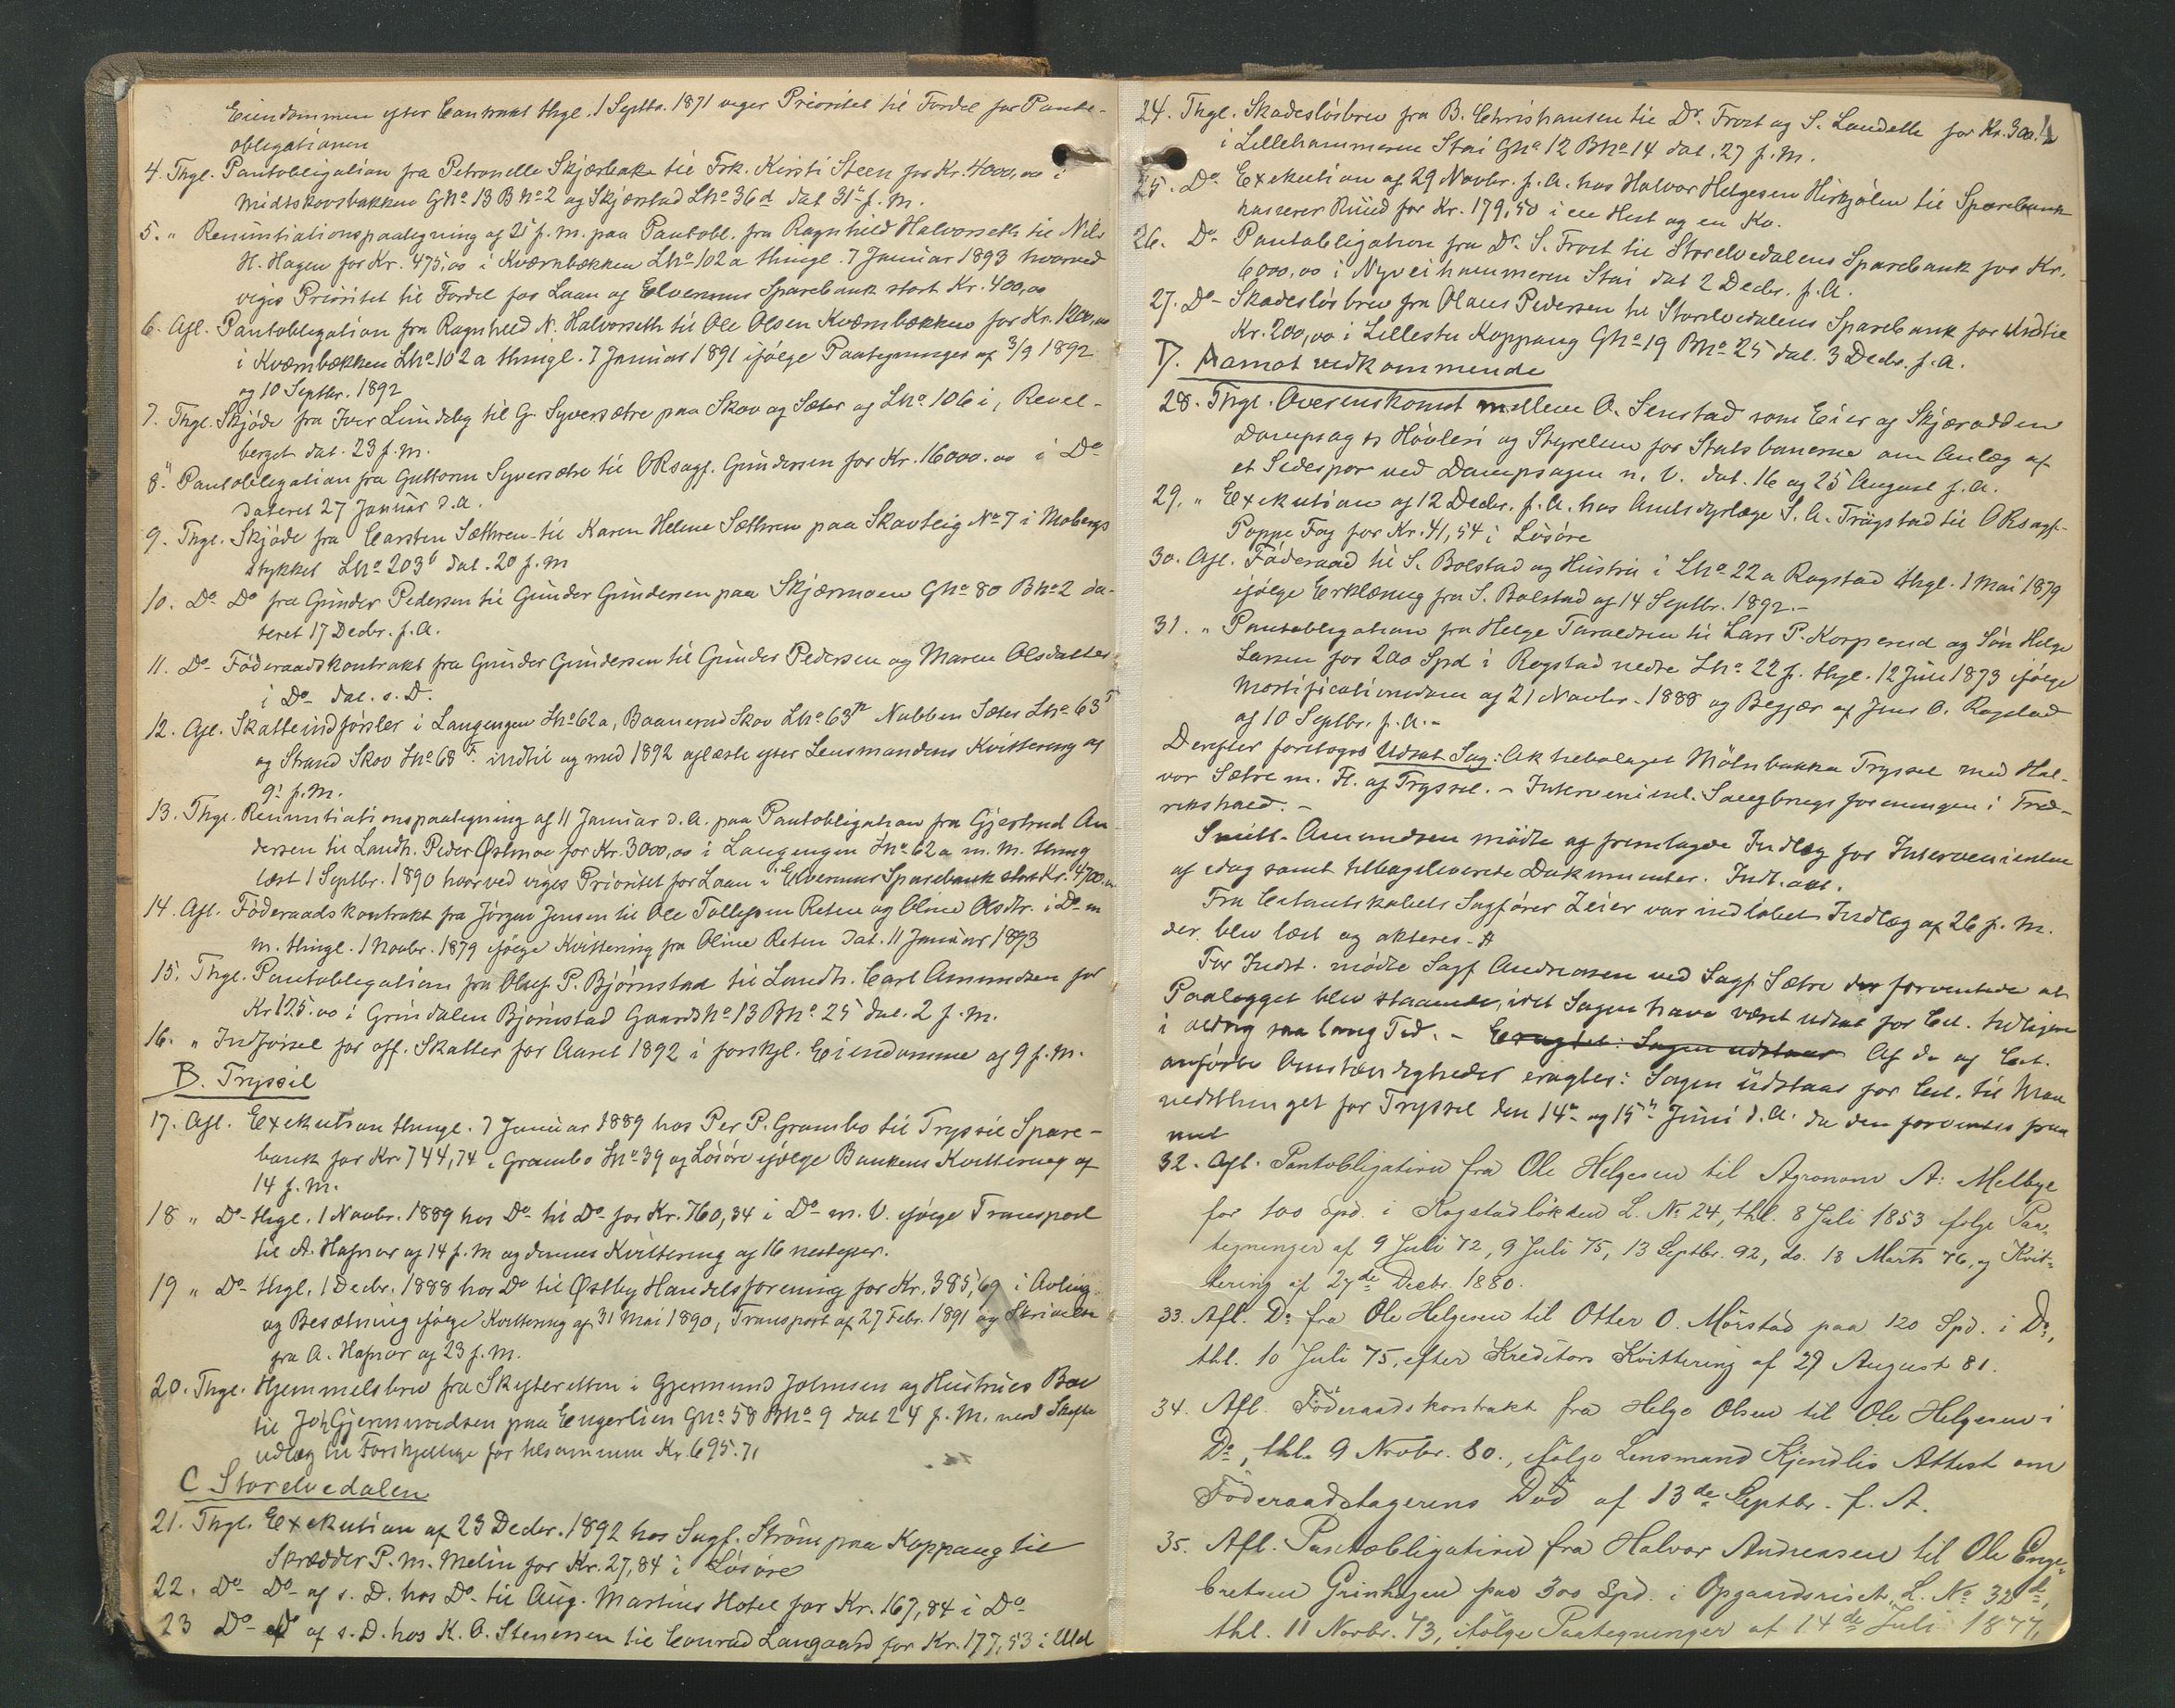 Eiendommen efter Contrakt thgl. 1 Septbr. 1871 viger Prioritet til Fordel for Pante-
obligationen
4. Thgl. Pantobligation fra Petronelle Skjærbæk til Frk. Kirsti Steen for Kr. 4000,00 i
Midtskovsbakken Gno 13 Bno 2 og Skjærstad Lno 36d dat 31te f. M.
5. " Renuntiationspaategning af 21 f. M. paa Pantobl. fra Ragnhild Halvorseth til Nils
H. Hagen for Kr. 475,00 i Kværnbækken Lno 102a thingl. 7 Januar 1893 hvorved
viges Prioritet til Fordel for Laan af Elverums Sparebank stort Kr. 400,00
6. Afl. Pantobligation fra Ragnhild N. Halvorseth til Ole Olsen Kværnbækken for Kr.
i Kværnbækken Lno 102a thingl. 7 Januar 1891 ifølge Paategninger af 3/9 1892
og 10 Septbr. 1892
7. Thgl. Skjøde fra Iver Lundeby til G. Syversætre paa Skov og Sæter af Lno 106i, Revel-
berget dat. 23 f. M.
8. " Pantobligation fra Guttorm Syversætre til ORsagf. Gundersen for Kr. 16000.00 i Do
dateret 27 Januar d. A.
9. Thgl. Skjøde fra Carsten Sæthren til Karen Helene Sæthren paa Skovteig No 7 i Mobergs
stykket Lno 203b dat. 20 f. M
10. Do Do fra Gunder Pedersen til Gunder Gundersen paa Skjærmoen Gno 80 Bno 2 da-
teret 17 Decbr. f. A.
11. Do Föderaadskontrakt fra Gunder Gundersen til Gunder Pedersen og Maren Olsdatter
i Do dat. s. D.
12. Afl. Skatteindførsler i Langengen Lno 62a, Baanerud Skov Lno 63n Nubben Sæter Lno 63
og Strand Skov Lno 68 F. indtil og med 1892 aflæste efter Lensmandens Kvittering af
9de f. M.
13. Thgl. Renuntiationspaategning af 11 Januar d. A. paa Pantobligation fra Gjertrud An-
dersen til Landh. Peder Østmoe for Kr. 3000,00 i Langengen Lno 62a m. M. thing
læst 1 Septbr. 1890 hvorved viges Prioritet for Laan i Elverums Sparebank stort Kr. 4700.00
14. Afl. Föderaadskontrakt fra Jörgen Jensen til Ole Tollefsen Reten og Oline Olsdtr. i Do m
m. thingl. 1 Novbr. 1879 ifølge Kvittering fra Oline Reten dat. 11 Januar 1893
15. Thgl. Pantobligation fra Oluf P. Bjørnstad til Landh. Carl Amundsen for
Kr 125.00 i Grindalen Bjørnstad Gaardsno 13 Bno 25 dat. 2 f. M.
16. " Indførsel for off. Skatter for Aaret 1892 i forskjl. Eiendomme af 9 f. M.
B. Tryssil
17. Afl. Exekution thingl. 7 Januar 1889 hos Per P. Grambo til Tryssil Spare-
bank for Kr. 744,74 i Grambo Lno 39 og Løsöre ifølge Bankens Kvittering af
14 f. M.
18 " Do thgl. 1 Novbr. 1889 hos Do til Do for Kr. 760,34 i Do m. V. ifølge Transport
til A. Hafnor af 14 f. M og dennes Kvittering af 16 nestefter.
19 " Do thgl. 1 Decbr. 1888 hos Do til Østby Handelsforening for Kr. 385,69 i Avling
og Besætning ifølge Kvittering af 31 Mai 1890, Transport af 27 Febr. 1891 og Skrivelse
fra A. Hafnor af 23 f. M.
20. Thgl. Hjemmelsbrev fra Skifteretten i Gjermund Johnsen og Hustrues Bo
til Joh Gjermundsen paa Engerlien Gno 58 Bno 9 dat 24 f. M. med Skifte
udlæg til Forskjellige for tilsammen Kr. 695.71
C Storelvedalen
21. Thgl. Exekution af 23 Decbr. 1892 hos Sagf. Ström paa Koppang til
Skrædder P. M. Melin for Kr. 27,84 i Løsöre
22. Do Do af s. D. hos Do til Aug. Martins Hotel for Kr. 167,84 i Do
23 Do Do af s. D. hos K. O. Stenersen til Conrad Langaard for Kr. 177,53 i Uld
24. Thgl. Skadesløsbrev fra B. Christiansen til Dr. Frost og S. Landell for Kr. 300.
i Lillehammeren Stai Gno 12 Bno 14 dat. 27 f. M.
25. Do Exekution af 29 Novbr. f. A. hos Halvor Helgesen Hirkjølen til Sparebank
kasserer Ruud for Kr. 179,50 i en Hest og en Ko.
26. Do Pantobligation fra Dr. S. Frost til Storelvedalens Sparebank for Kr.
6000,00 i Nyveihammeren Stai dat 2 Decbr. f. A.
27. Do Skadesløsbrev fra Olaus Pedersen til Storelvedalens Sparebank for indtil
Kr. 200,00 i Lillestu Koppang Gno 19 Bno 25 dat. 3 Decbr. f. A.
D. Aamot vedkommende
28. Thgl. Overenskomst mellem O. Senstad som Eier af Skjærodden
Dampsag & Høvleri og Styrelsen for Statsbanerne om Anlæg af
et Sidespor ved Dampsagen m. V. dat. 16 og 25 August f. A.
29. " Exekution af 12 Decbr. f. A. hos Amtsdyrlæge S. A. Trøgstad til ORsagf.
Poppe Fog for Kr. 41,54 i Løsöre
30. Afl. Föderaad til S. Bolstad og Hustru i Lno 22a Rogstad thgl. 1 Mai 1879
ifølge Erklæring fra S. Bolstad af 14 Septbr. 1892.-
31. " Pantobligation fra Helge Taraldsen til Lars P. Korperud og Søn Helge
Larsen for 200 Spd i Rogstad nedre Lno 22f. thgl. 12 Juli 1873 ifølge
Mortificationsdom af 21 Novbr. 1888 og Begjær af Jens O. Rogstad
af 10 Septbr. f. A.-
Derefter foretoges Udsat Sag: Aktiebolaget Mölnbakka Tryssil mod Hal-
vor Sætre m. Fl. af Tryssel. - Intervenient. Saugbrugsforeningen i Fred-
rikshald. -
Smitt-Amundsen mødte og fremlagde Indlæg for Intervenienten
af idag samt tilbageleverede Dokumenter. Indt.
Fra Citantskabets Sagfører Zeier var indløbet Indlæg af 26 f. M.
der blev læst og akteres. #
For Indst. mødte Sagf Andreasen ved Sagf Sætre der forventede at
Paalægget blev staaende, idet Sagen have været udsat for Cit. tidligere
i aldrig saa lang Tid. - Eragtet: Sagen udstaar Af de af Cit.
anførte Omstændigheder eragtes: Sagen udstaar for Cit. til Maa
nedsthinget for Tryssil den 14de og 15de Juni d. A. da den forventes frem
met
32. Afl. Pantobligation fra Ole Helgesen til Agronom A. Melbye
for 100 Spd. i Rogstadløkken L. No 24, thl. 8 Juli 1853 følge Paa-
tegninger af 9 Juli 72, 9 Juli 75, 13 Septbr. 92, do. 18 Marts 76, og Kvit-
tering af 27de Decbr. 1880.
33. Afl. Do fra Ole Helgesen til Otter O. Mørstad paa 120 Spd. i Do,
thl. 10 Juli 75, efter Kreditors Kvittering af 27 August 81.
34. Afl. Föderaadskontrakt fra Helge Olsen til Ole Helgesen i
Do, thl. 9 Novbr. 80., ifølge Lensmand Kjendlis Attest om
Föderaadstagerens Död af 13de Septbr. f. A.
35. Afl. Pantobligation fra Halvor Andreasen til Ole Enge-
bretsen Grinhagen paa 300 Spd. i Opgaardsriset, L. No 32d,
thl. 11 Novbr. 73, ifølge Paategninger af 14de Juli 1877,